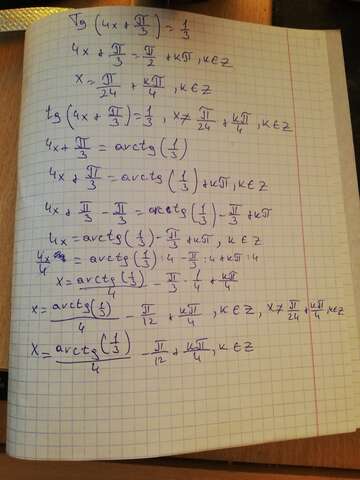 Tg (4x + π/3) = 1/3
4x + π/3 = π/2 + kπ, k∈Z
x = π/24 + kπ/4, k∈Z
tg (4x + π/3) = 1/3, x ≠ π/24 + kπ/4, k∈Z
4x + π/3 = arctg (1/3)
4x + π/3 = arctg (1/3) + kπ, k∈Z
4x + π/3 - π/3 = arctg (1/3) - π/3 + kπ
4x = arctg (1/3) - π/3 + kπ, k∈Z
4x/4 = arctg (1/3) : 4 - π/3 : 4 + kπ : 4
x = arctg (1/3)/4 - π/3 · 1/4 + kπ/4
x = arctg (1/3)/4 - π/12 + kπ/4, k∈Z, x ≠ π/24 + kπ/4, k∈Z
x = arctg (1/3)/4 - π/12 + kπ/4, k∈Z